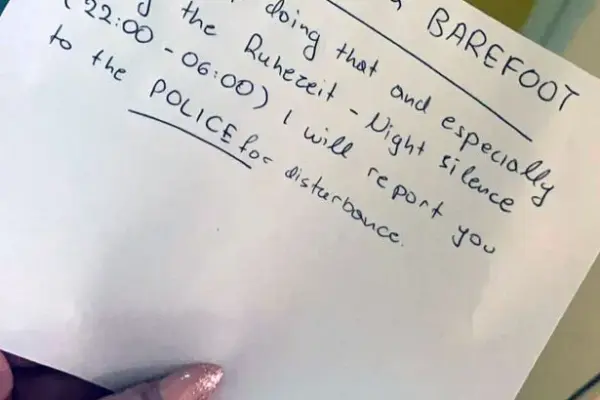 BAREFOOT
doing that and especially
the Ruhezeit - Night silence
(22:00 - 06:00) I will report you
to the POLICE for disturbance.